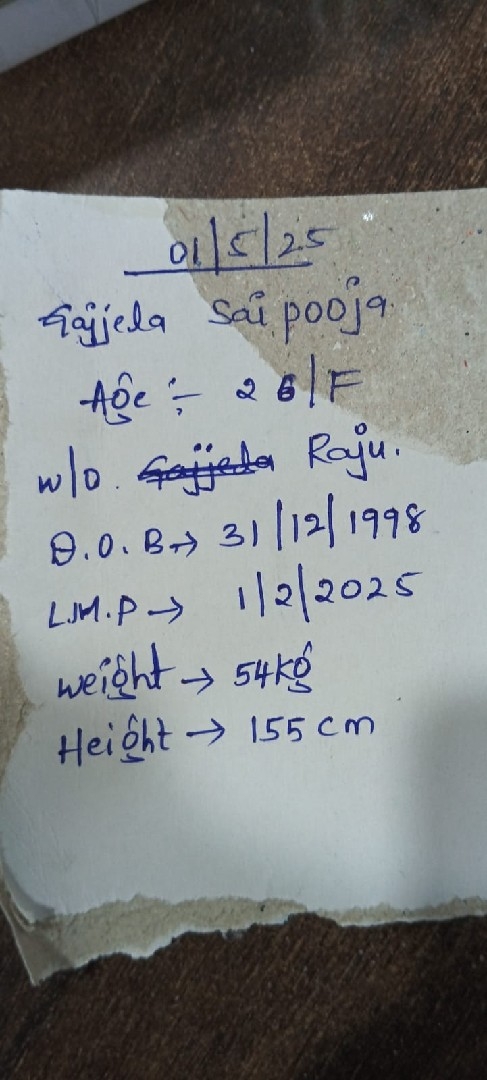 01/5/25
Gajjela Sai pooja
Age :- 26/F
w/o. Gajjela Raju.
D.O.B→ 31/12/1998
L.M.P → 1/2/2025
weight → 54kg
Height → 155 cm